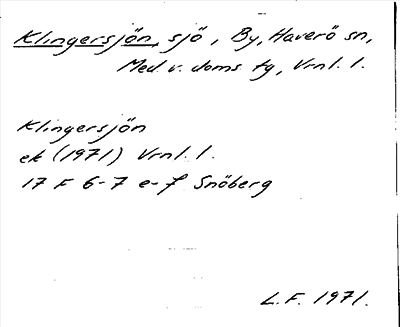 Klingersjön, sjö, By, Haverö sn,
Med. v. doms. tg, Vrnl. l.
Klingersjön
ek (1971) Vrnl. l.
17 F 6-7 e-f Snöberg
L.F. 1971.